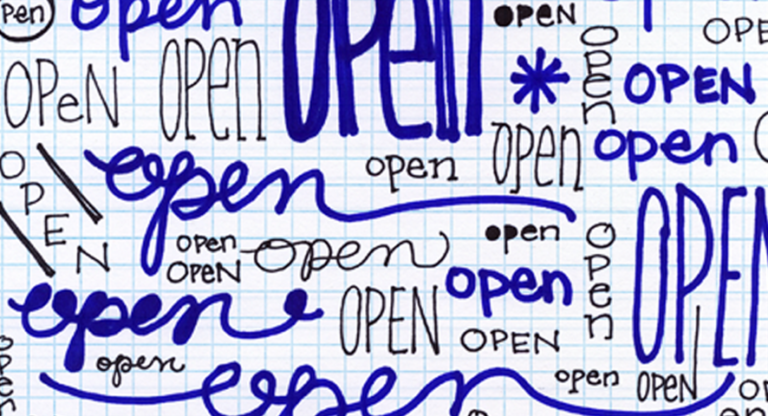 open
open
OPeN
OPE
OPeN
open
OPEN
open
OPEN
open
open
open
open
OPEN
open
open
OPEN
open
open
OPEN
open
open
OPEN
open
OPEN
open
open
open
OPEN